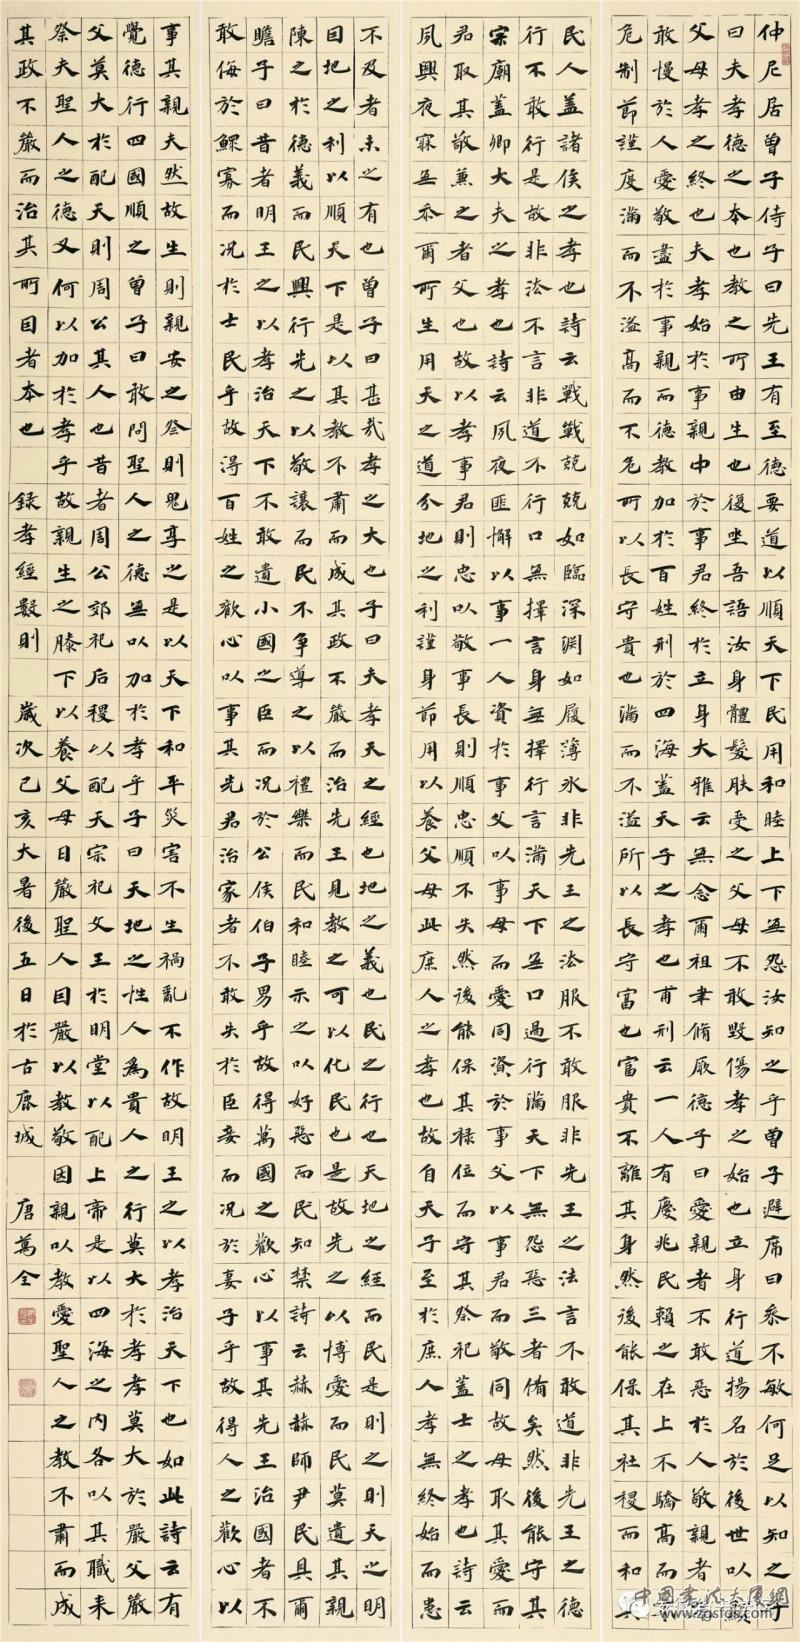 仲尼居曾子侍子曰先王有至德要道以順天下民用和睦上下無怨汝知之乎曾子避席曰參不敏何足以知之子
曰夫孝德之本也教之所由生也復坐吾語汝身體髮肤受之父母不敢毀傷孝之始也立身行道揚名於後世以顯
父母孝之終也夫孝始於事親中於事君終於立身大雅云無念爾祖聿脩厥德子曰愛親者不敢惡於人敬親者不
敢慢於人愛敬盡於事親而德教加於百姓刑於四海蓋天子之孝也甫刑云一人有慶兆民賴之在上不驕高而不
危制節謹度滿而不溢高而不危所以長守貴也滿而不溢所以長守富也富貴不離其身然後能保其社稷而和其
民人蓋諸侯之孝也詩云戰戰兢兢如臨深淵如履薄冰非先王之法服不敢服非先王之法言不敢道非先王之德
行不敢行是故非法不言非道不行口無擇言身無擇行言滿天下無口過行滿天下無怨惡三者備矣然後能守其
宗廟蓋卿大夫之孝也詩云夙夜匪懈以事一人資於事父以事母而愛同資於事父以事君而敬同故母取其愛而
君取其敬兼之者父也故以孝事君則忠以敬事長則順忠順不失然後能保其祿位而守其祭祀蓋士之孝也詩云
夙興夜寐無忝爾所生用天之道分地之利謹身節用以養父母此庶人之孝也故自天子至於庶人孝無終始而患
不及者未之有也曾子曰甚哉孝之大也子曰夫孝天之經也地之義也民之行也天地之經而民是則之則天之明
因地之利以順天下是以其教不肅而成其政不嚴而治先王見教之可以化民也是故先之以博愛而民莫遺其親
陳之於德義而民興行先之以敬讓而民不爭導之以禮樂而民和睦示之以好惡而民知禁詩云赫赫師尹民具爾
瞻子曰昔者明王之以孝治天下不敢遺小國之臣而況於公侯伯子男乎故得萬國之歡心以事其先王治國者不
敢侮於鰥寡而況於士民乎故得百姓之歡心以事其先君治家者不敢失於臣妾而況於妻子乎故得人之歡心以
事其親夫然故生則親安之祭則鬼享之是以天下和平災害不生禍亂不作故明王之以孝治天下也如此詩云有
覺德行四國順之曾子曰敢問聖人之德無以加於孝乎子曰天地之性人為貴人之行莫大於孝孝莫大於嚴父嚴
父莫大於配天則周公其人也昔者周公郊祀后稷以配天宗祀文王於明堂以配上帝是以四海之內各以其職来
祭夫聖人之德又何以加於孝乎故親生之膝下以養父母日嚴聖人因嚴以教敬因親以教愛聖人之教不肅而成
其政不嚴而治其所因者本也 錄孝經數則 歲次己亥大暑後五日於古鹿城 唐萬全